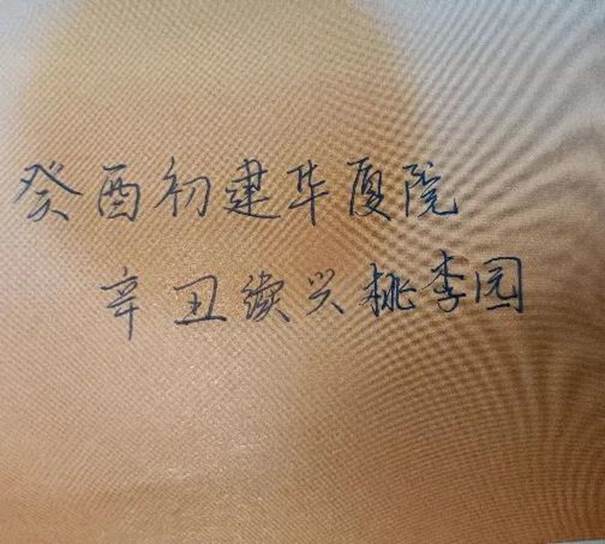 癸酉初建华夏院
辛丑续兴桃李园